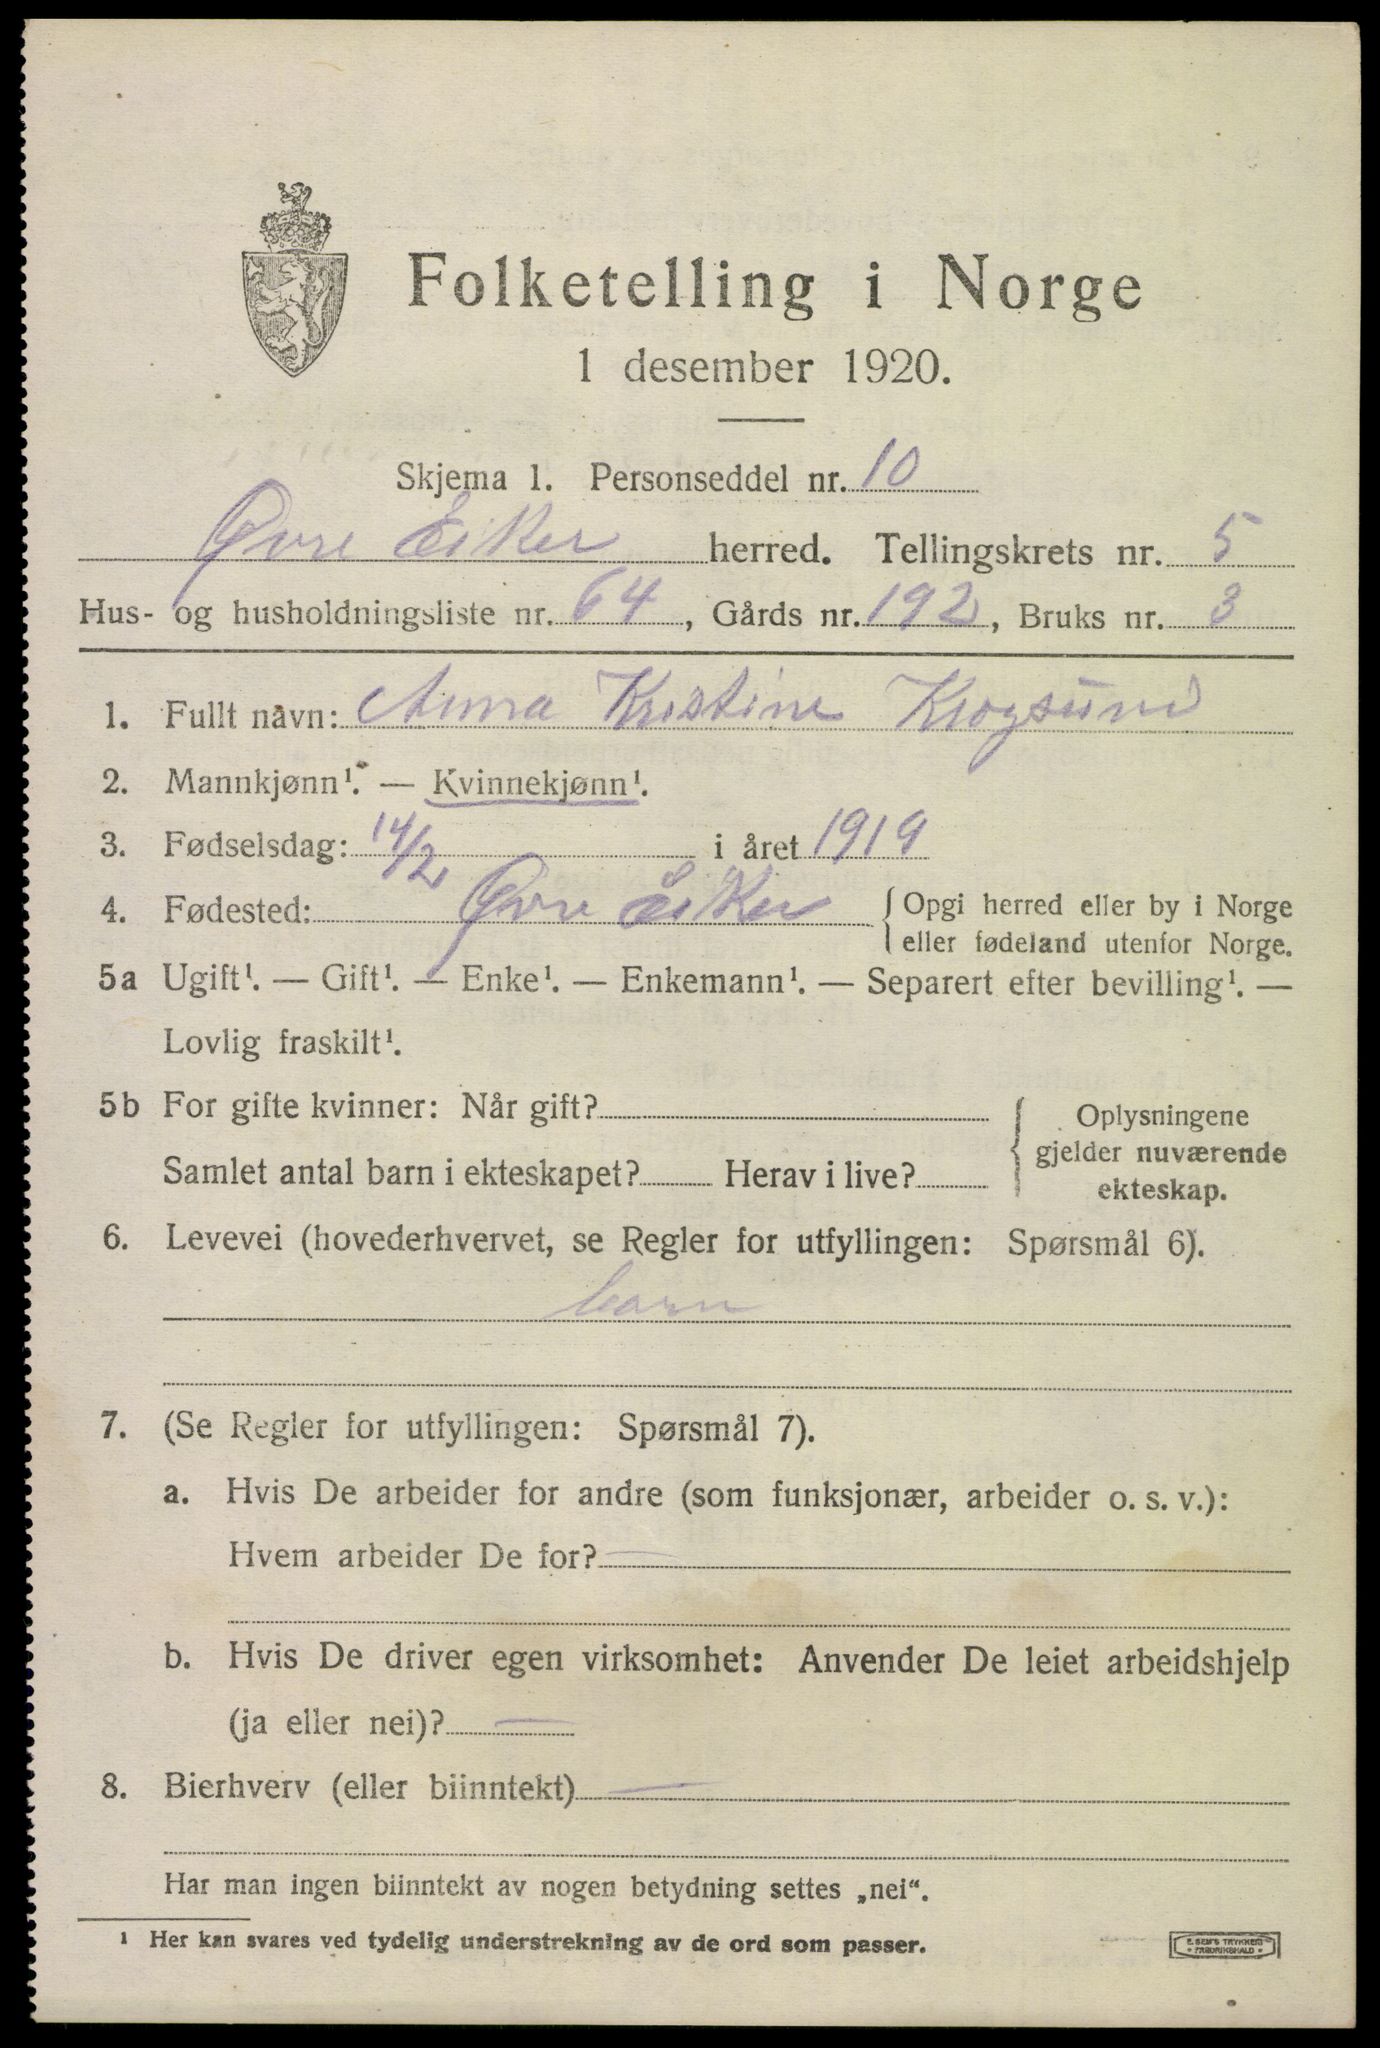 Folketelling i Norge
1 desember 1920.
Skjema 1. Personseddel nr. 10
Øvre Eiker herred. Tellingskrets nr. 5
Hus- og husholdningsliste nr. 64, Gårds nr. 192, Bruks nr. 3
1. Fullt navn: Anna Kristine Krogsund
2. Mannkjønn¹. — Kvinnekjønn¹.
3. Fødselsdag: 14/2 i året 1919
4. Fødested: Øvre Eiker { Opgi herred eller by i Norge
eller fødeland utenfor Norge.
5a Ugift¹. — Gift¹. — Enke¹. — Enkemann¹. — Separert efter bevilling¹. —
Lovlig fraskilt¹.
5b For gifte kvinner: Når gift?
Samlet antal barn i ekteskapet? Herav i live?
Oplysningene
gjelder nuværende
ekteskap.
6. Levevei (hovederhvervet, se Regler for utfyllingen: Spørsmål 6).
barn
7. (Se Regler for utfyllingen: Spørsmål 7).
a. Hvis De arbeider for andre (som funksjonær, arbeider o. s. v.):
Hvem arbeider De for? —
b. Hvis De driver egen virksomhet: Anvender De leiet arbeidshjelp
(ja eller nei)? —
8. Bierhverv (eller biinntekt) —
Har man ingen biinntekt av nogen betydning settes „nei“.
¹ Her kan svares ved tydelig understrekning av de ord som passer.
E. SEM'S TRYKKERI
• FREDRIKSHALD •